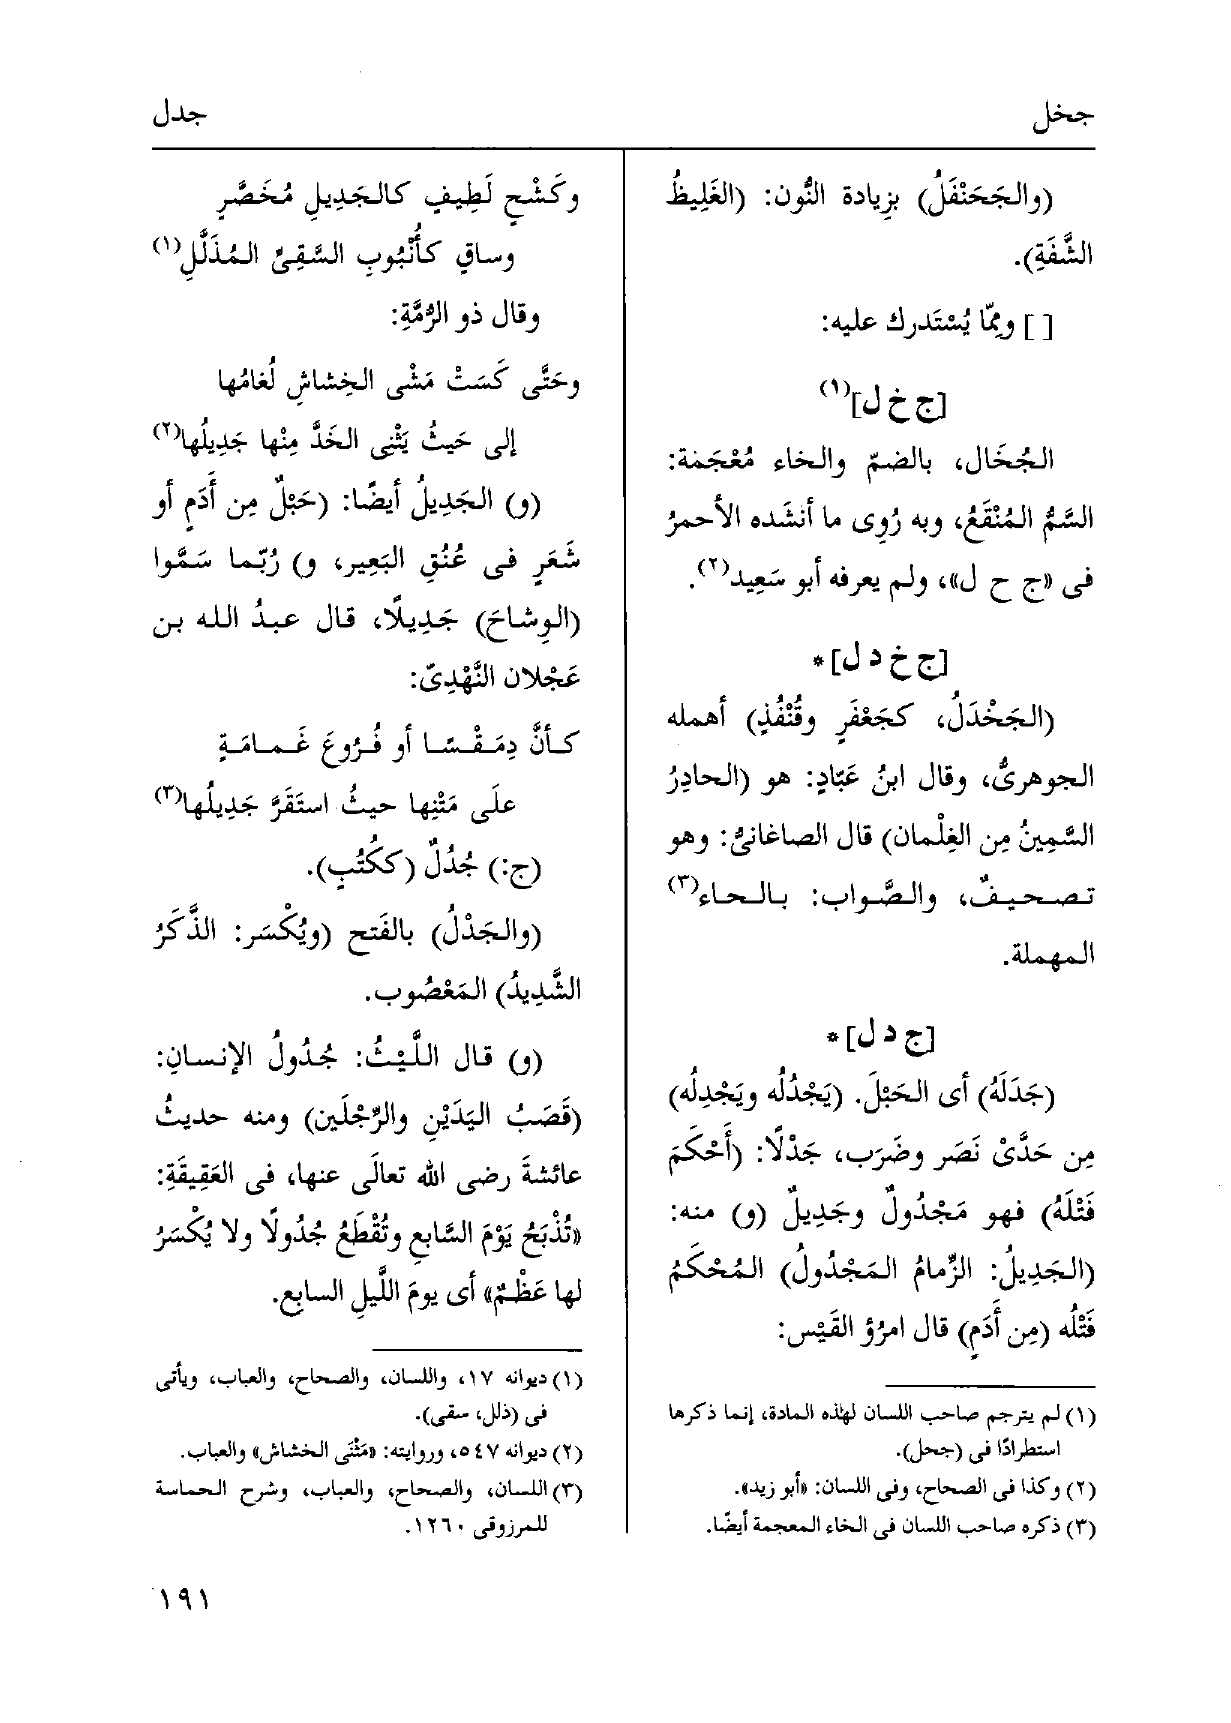 جخل
جدل
(والجَحَنْفَلُ) بزِيادة النُّون: (الغَلِيظُ
الشَّفَةِ).
[ ] ومِمّا يُسْتَدرك عليه:
[ج خ ل](١)
الجُخَال، بالضمّ والخاء مُعْجَمَة:
السَّمُّ المُنْقَعُ، وبه رُوِى ما أنشَده الأحمرُ
فى «ج ح ل»، ولم يعرفه أبو سَعِيد(٢).
[ج خ د ل]*
(الجَخْدَلُ، كجَعْفَرٍ وقُنْفُذٍ) أهمله
الجوهرىُّ، وقال ابنُ عَبّادٍ: هو (الحادِرُ
السَّمِينُ مِن الغِلْمان) قال الصاغانىُّ: وهو
تصحيفٌ، والصَّواب: بالحاء(٣)
المهملة.
[ج د ل]*
(جَدَلَهُ) أى الحَبْلَ. (يَجْدُلُه ويَجْدِلُه)
مِن حَدَّىْ نَصَر وضَرَب، جَدْلًا: (أَحْكَمَ
فَتْلَهُ) فهو مَجْدُولٌ وجَدِيلٌ (و) منه:
(الجَدِيلُ: الزِّمامُ المَجْدُولُ) المُحْكَمُ
فَتْلُه (مِن أَدَمٍ) قال امرُؤ القَيْس:
(١) لم يترجم صاحب اللسان لهٰذه المادة، إنما ذكرها
استطرادًا فى (جحل).
(٢) وكذا فى الصحاح، وفى اللسان: «أبو زيد».
(٣) ذكره صاحب اللسان فى الخاء المعجمة أيضًا.
وكَشْحٍ لَطِيفٍ كالجَدِيلِ مُخَصَّرٍ
وساقٍ كأُنْبُوبِ السَّقِىِّ المُذَلَّلِ(١)
وقال ذو الرُّمَّةِ:
وحَتَّى كَسَتْ مَشْى الخِشاشِ لُغامُها
إلى حَيثُ يَثْنِى الخَدَّ مِنْها جَدِيلُها(٢)
(و) الجَدِيلُ أيضًا: (حَبْلٌ مِن أَدَمٍ أو
شَعَرٍ فى عُنُقِ البَعِير، و) رُبّما سَمَّوا
(الوِشاحَ) جَدِيلًا، قال عبدُ الله بن
عَجْلان النَّهْدِىّ:
كأنَّ دِمَقْسًا أو فُرُوعَ غَمامَةٍ
علَى مَتْنِها حيثُ استَقَرَّ جَدِيلُها(٣)
(ج:) جُدُلٌ (ككُتُبٍ).
(والجَدْلُ) بالفَتح (ويُكْسَر: الذَّكَرُ
الشَّدِيدُ) المَعْصُوب.
(و) قال اللَّيْثُ: جُدُولُ الإنسانِ:
(قَصَبُ اليَدَيْنِ والرِّجْلَين) ومنه حديثُ
عائشةَ رضى الله تعالَى عنها، فى العَقِيقَةِ:
«تُذْبَحُ يَوْمَ السَّابِعِ وتُقْطَعُ جُدُولًا ولا يُكْسَرُ
لها عَظْمٌ» أى يومَ اللَّيلِ السابع.
(١) ديوانه ١٧، واللسان، والصحاح، والعباب، ويأتى
فى (ذلل، سقى).
(٢) ديوانه ٥٤٧، وروايته: «مَثْنَى الخشاش» والعباب.
(٣) اللسان، والصحاح، والعباب، وشرح الحماسة
للمرزوقى ١٢٦٠.
١٩١